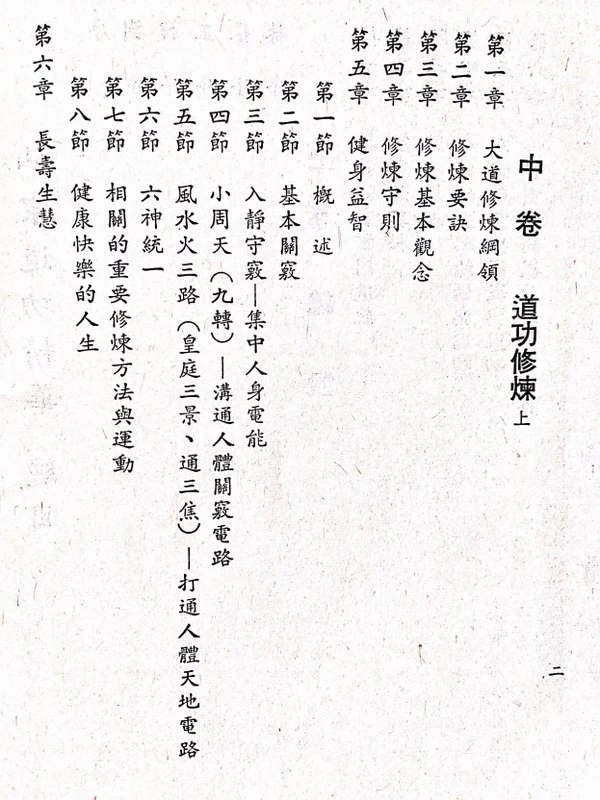 中卷　道功修煉 上
第一章　大道修煉綱領
第二章　修煉要訣
第三章　修煉基本觀念
第四章　修煉守則
第五章　健身益智
第一節　概　述
第二節　基本關竅
第三節　入靜守竅—集中人身電能
第四節　小周天（九轉）—溝通人體關竅電路
第五節　風水火三路（皇庭三景、通三焦）—打通人體天地電路
第六節　六神統一
第七節　相關的重要修煉方法與運動
第八節　健康快樂的人生
第六章　長壽生慧
二